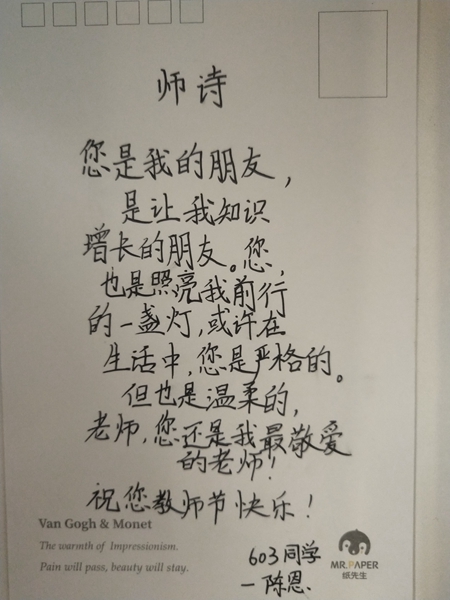 师诗
您是我的朋友，
是让我知识
增长的朋友。您，
也是照亮我前行
的一盏灯，或许在
生活中，您是严格的。
但也是温柔的，
老师，您还是我最敬爱
的老师！
祝您教师节快乐！
Van Gogh & Monet
The warmth of Impressionism.
Pain will pass, beauty will stay.
603同学
—陈恩.
MR.PAPER
纸先生